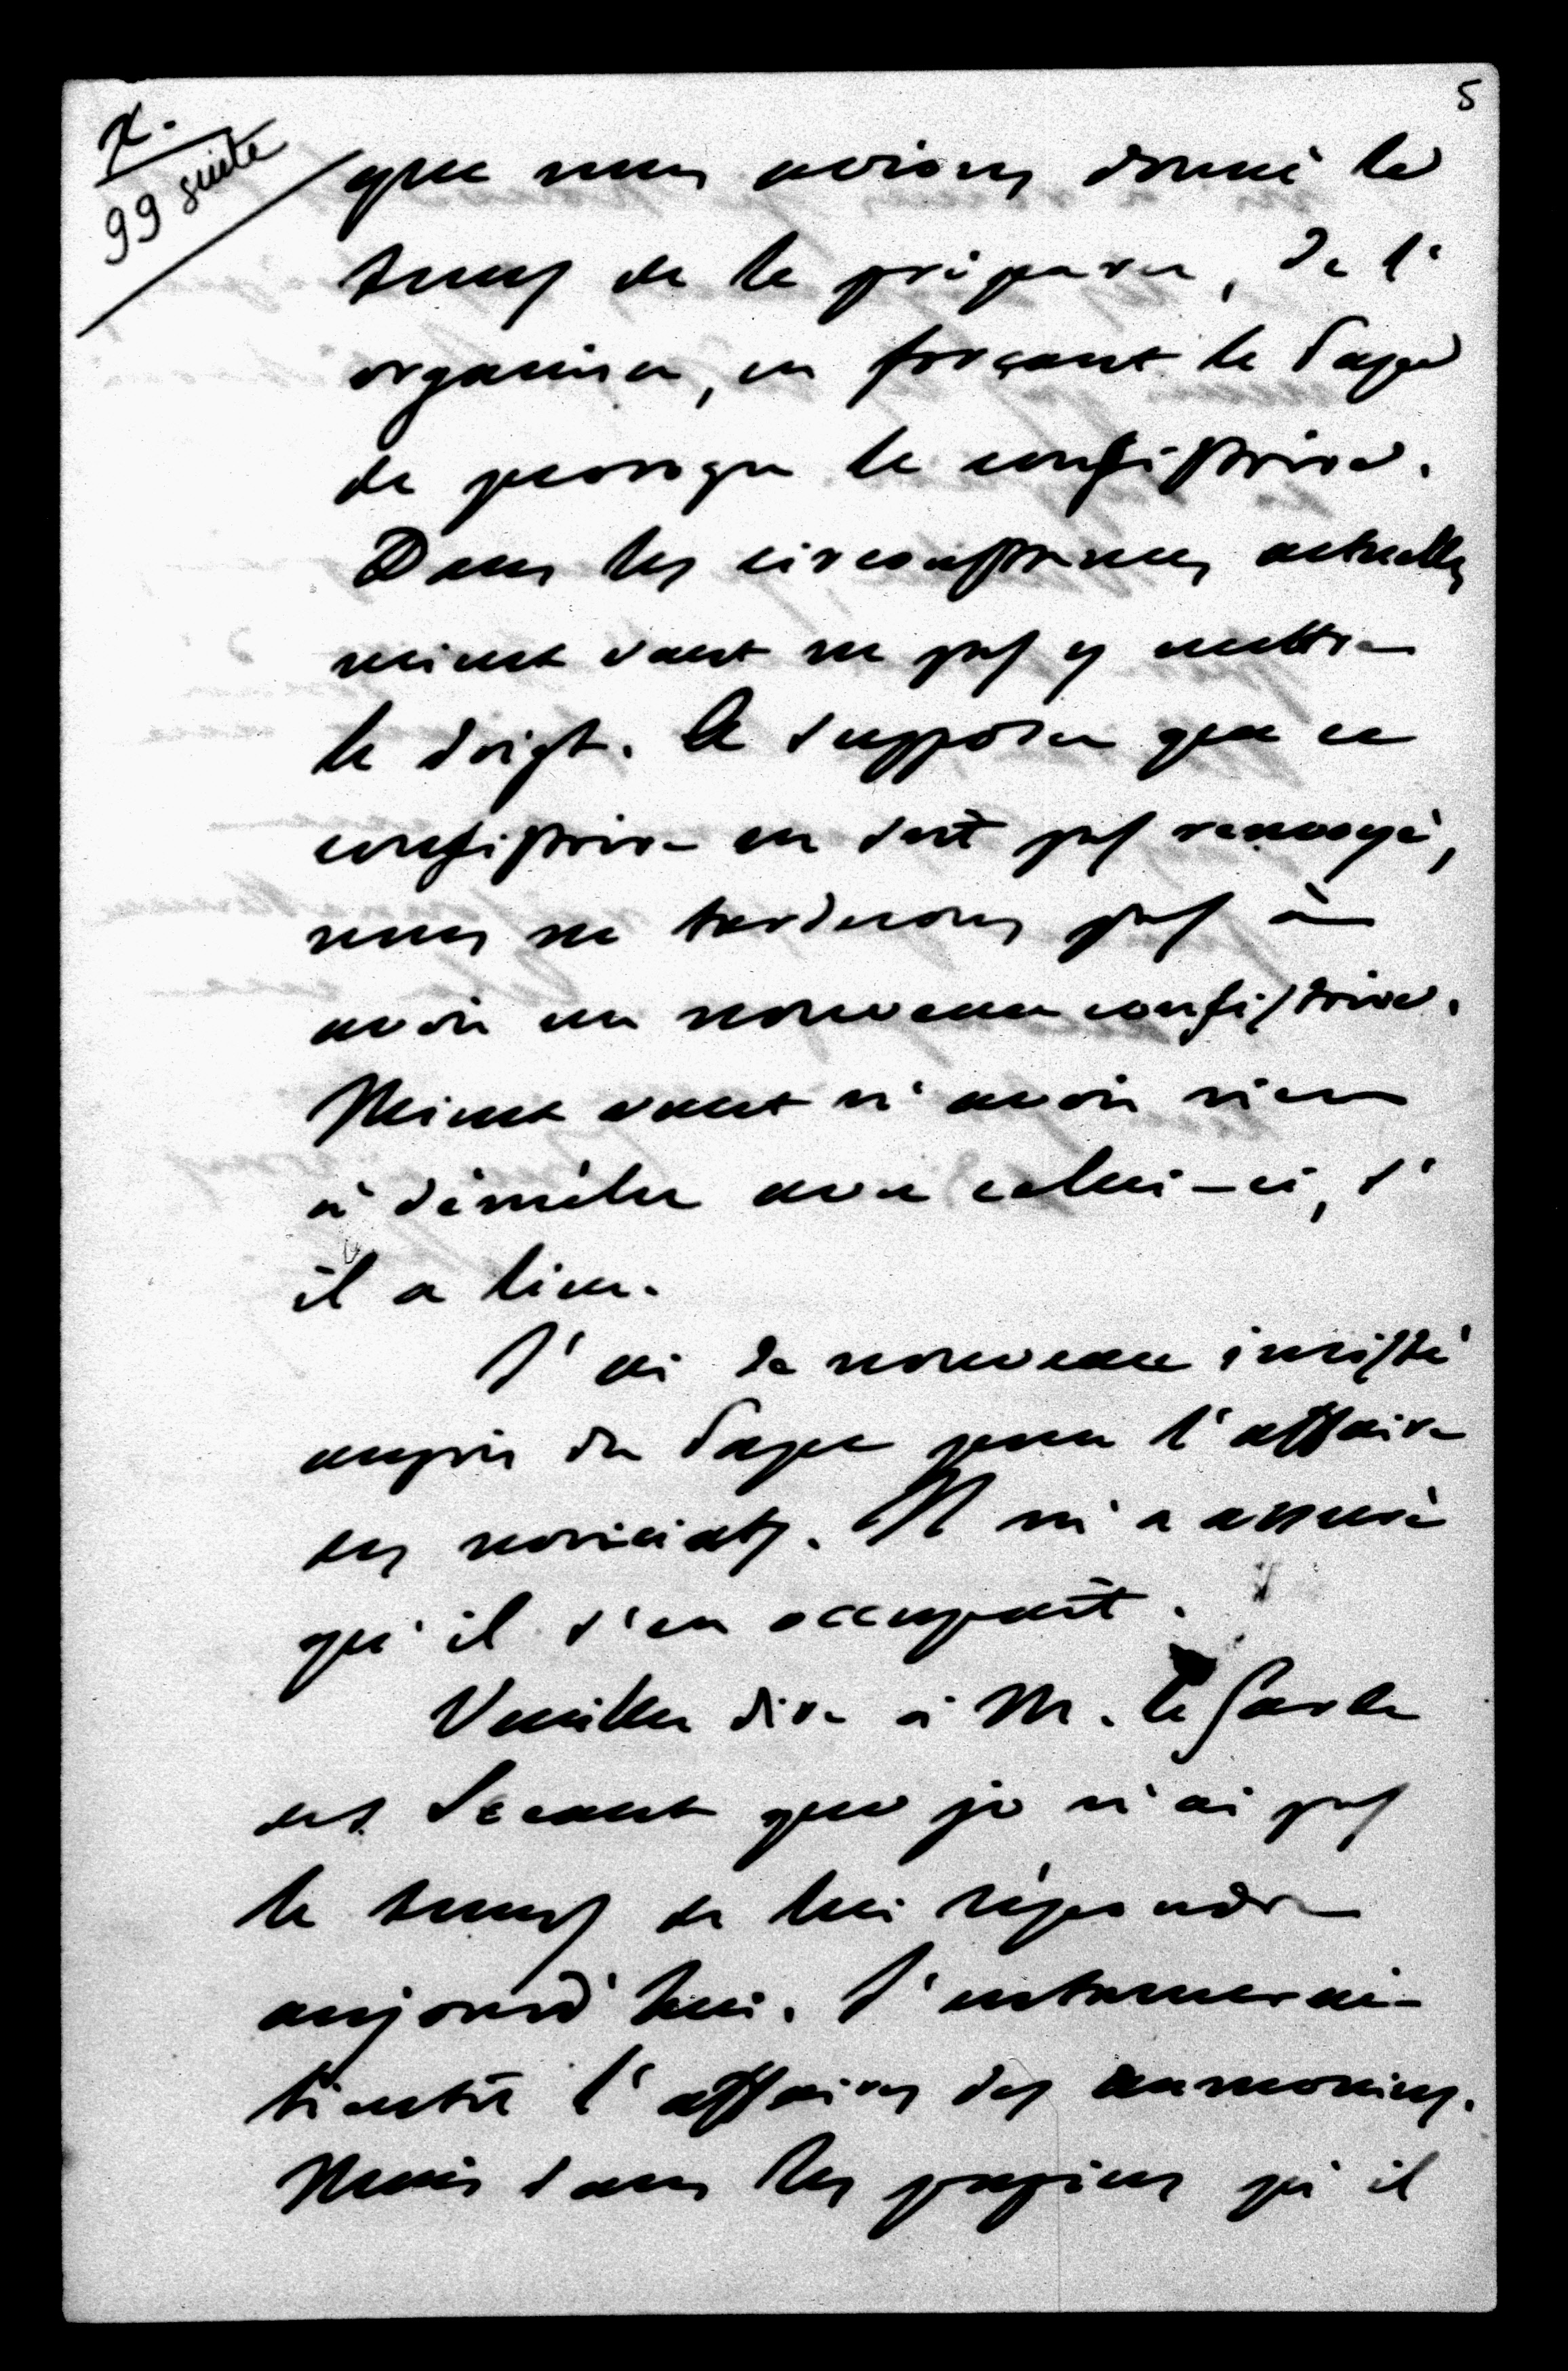 5
X.
99 suite
que nous avions donné le
temps de le préparer, de l'
organiser, en forçant le Pape
de proroger le consistoire.
Dans les circonstances actuelles
mieux vaut ne pas y mettre
le doigt. A supposer que ce
consistoire ne soit pas renvoyé,
nous ne tarderons pas à
avoir un nouveau consistoire.
Mieux vaut n'avoir rien
à démêler avec celui-ci, s'
il a lieu.
J'ai de nouveau insisté
auprès du Pape pour l'affaire
des noviciats. Il m'a assuré
qu'il s'en occupait.
Veuillez dire à M. le Garde
des Sceaux que je n'ai pas
le temps de lui répondre
aujourd'hui. J'entamerai
bientôt l'affaires des aumoniers.
Mais dans les papiers qu'il